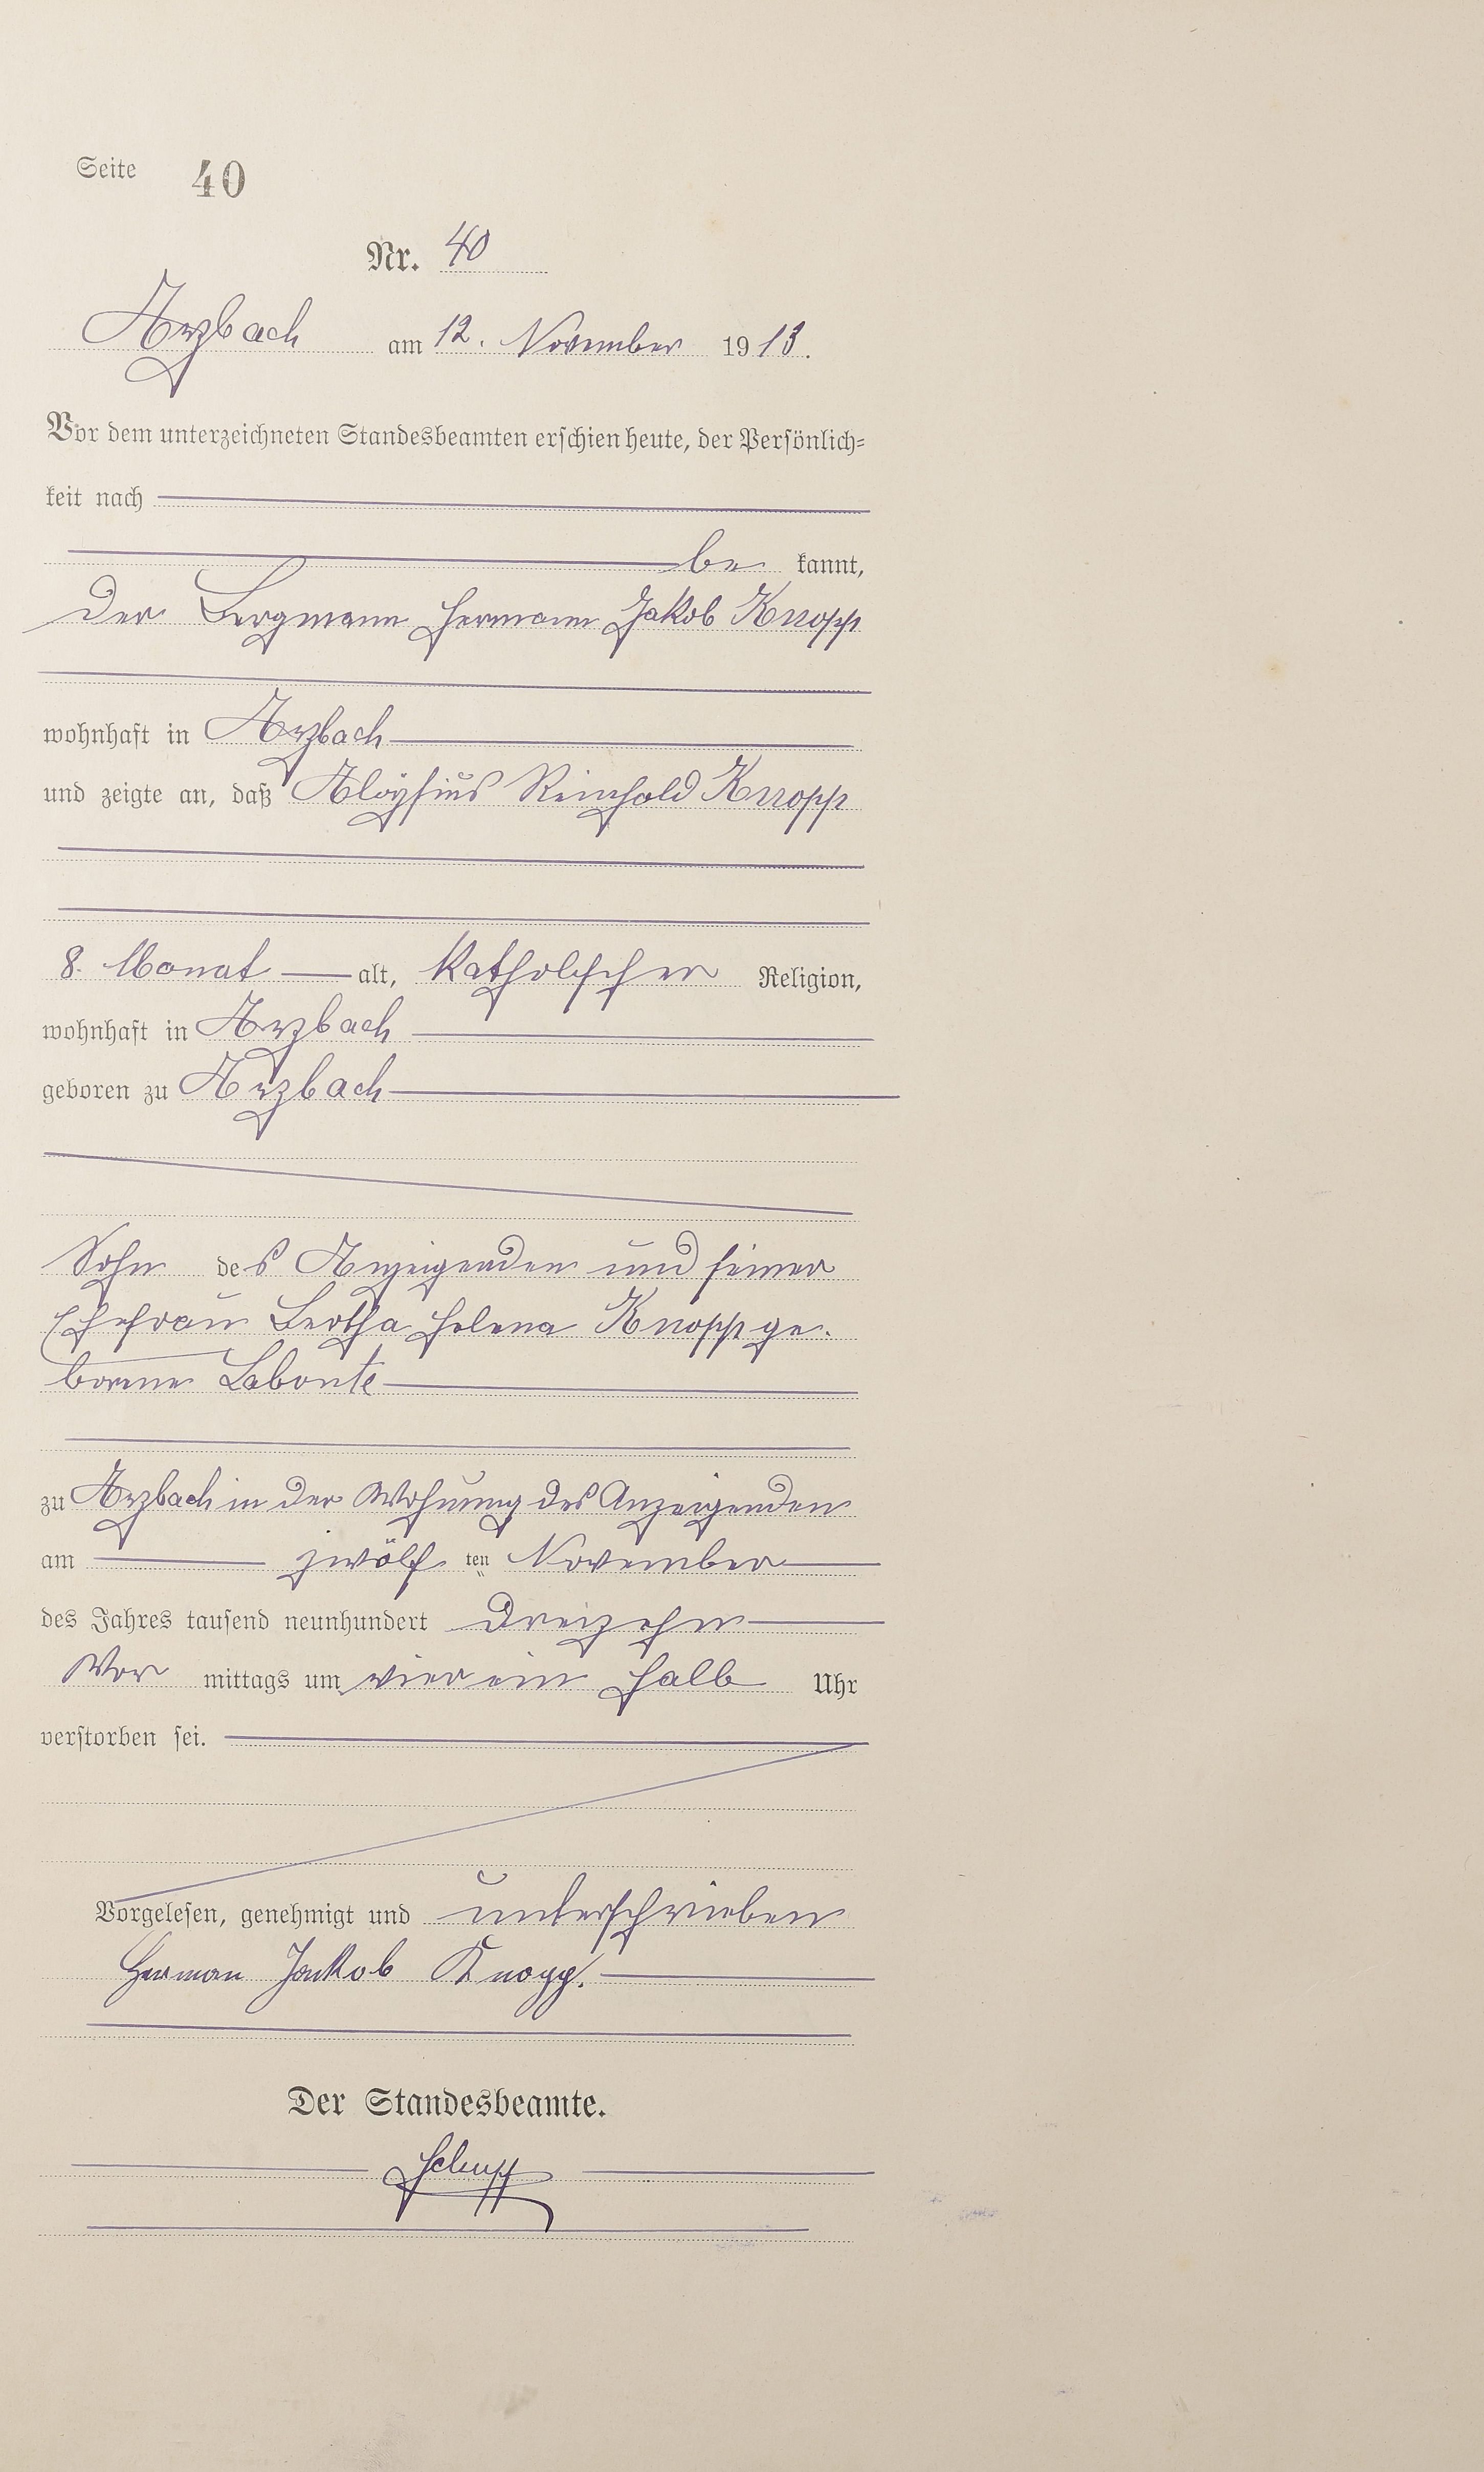 Seite 40
Nr. 40
Arzbach am 12. November 1913.
Vor dem unterzeichneten Standesbeamten erschien heute, der Persönlich-
keit nach
be kannt,
der Bergmann Hermann Jakob Knopp
wohnhaft in Arzbach
und zeigte an, daß Aloysius Reinhold Knopp
8. Monat alt, katholischer Religion,
wohnhaft in Arzbach
geboren zu Arzbach
Sohn des Anzeigenden und seiner
Ehefrau Bertha Helena Knopp ge-
borene Labonte
zu Arzbach in der Wohnung des Anzeigenden
am zwölf ten November
des Jahres tausend neunhundert dreizehn
Vor mittags um vier ein halb Uhr
verstorben sei.
Vorgelesen, genehmigt und unterschrieben
Herman Jakob Knopp.
Der Standesbeamte.